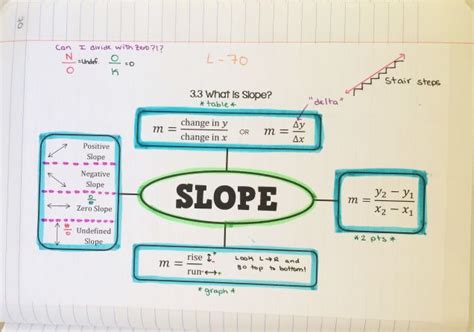 Can I divide with zero?!?
N/O = Undef. O/K = 0
L - 70
Stair steps
3.3 What Is Slope?
* table *
"delta"
m = change in y / change in x OR m = Δy / Δx
Positive Slope
Negative Slope
Zero Slope
Undefined Slope
SLOPE
m = y₂ − y₁ / x₂ − x₁
* 2 pts *
m = rise / run
Look L→R and
go top to bottom!
* graph *